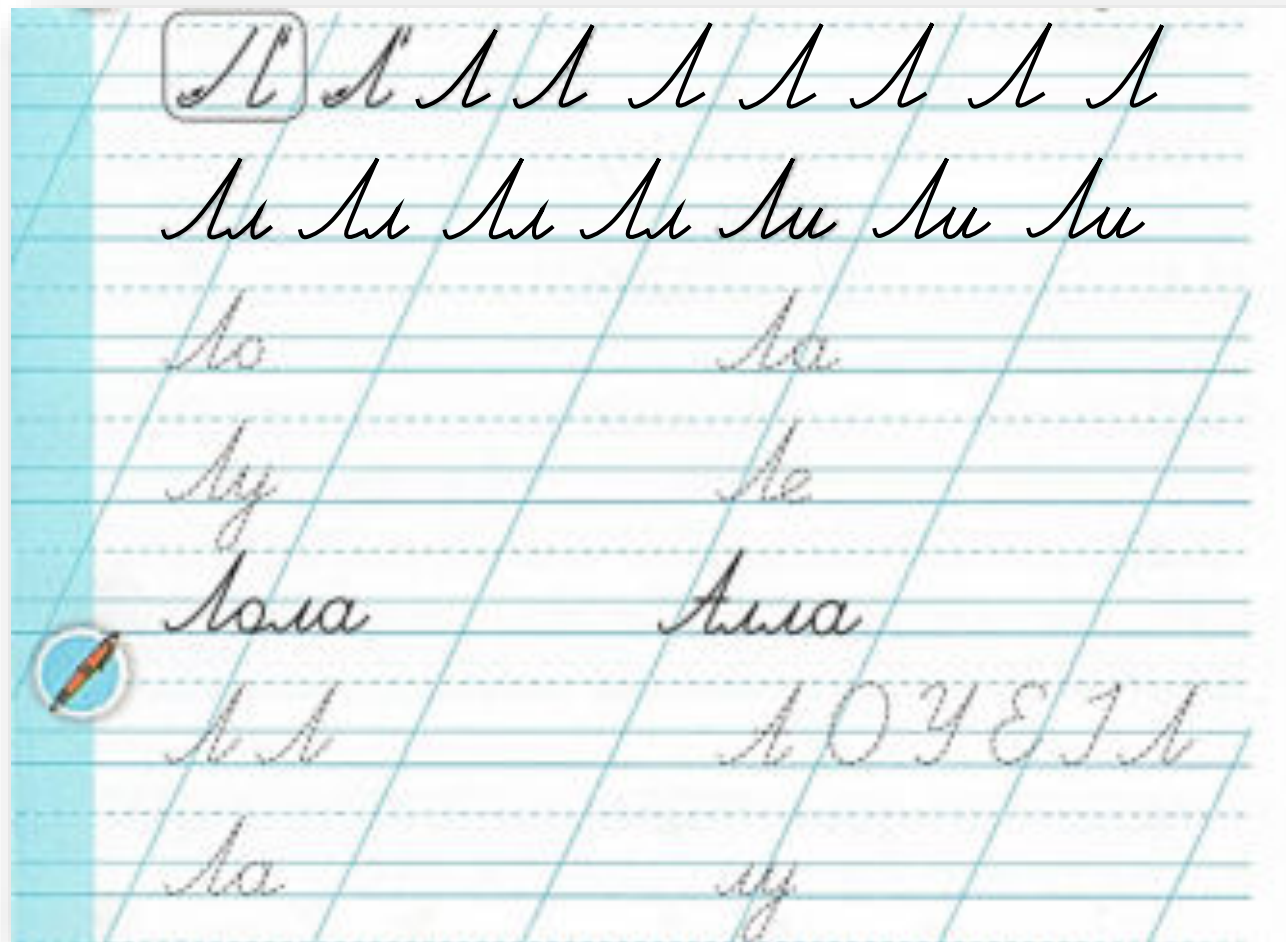 Л Л Л Л Л Л Л Л Л
Лл Лл Лл Лл Ли Ли Ли
Ло Ла
Лу Ле
Лола Алла
А Л А О У Е І Л
Ла лу